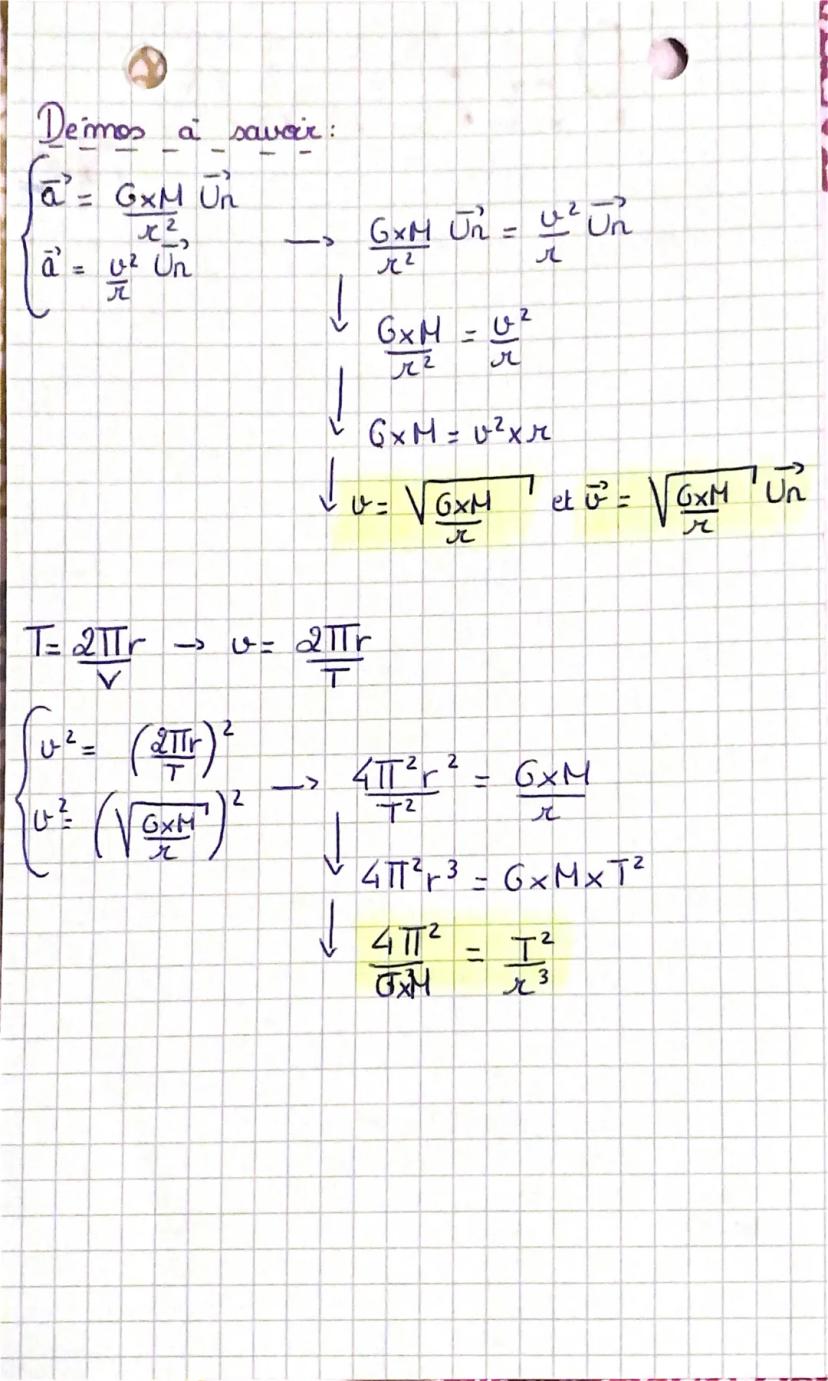 Démos à savoir :
a⃗ = G×M/r² U⃗n
a⃗ = v²/r U⃗n → G×M/r² U⃗n = v²/r U⃗n
↓ G×M/r² = v²/r
↓ G×M = v²×r
↓ v = √(G×M/r) et v⃗ = √(G×M/r) U⃗n
T = 2πr/V → v = 2πr/T
v² = (2πr/T)²
v² = (√(G×M/r))² → 4π²r²/T² = G×M/r
↓ 4π²r³ = G×M×T²
↓ 4π²/G×M = T²/r³